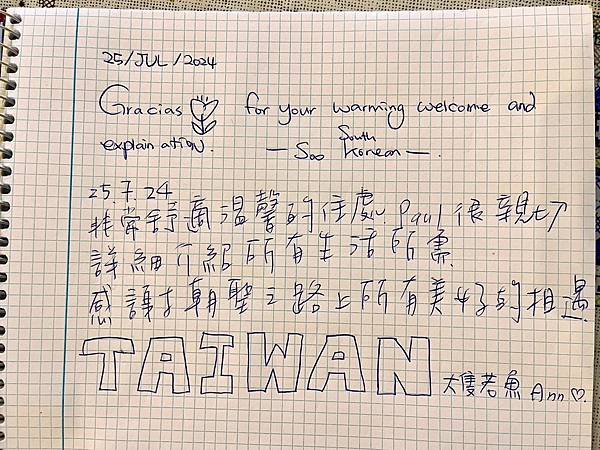 25/JUL/2024
Gracias for your warming welcome and
explanation. — Soo South Korean —.
25.7.24
非常舒適溫馨的住處. Paul 很親切
詳細介紹所有生活所需.
感謝朝聖之路上所有美好的相遇
TAIWAN 大隻若魚 Ann♡.